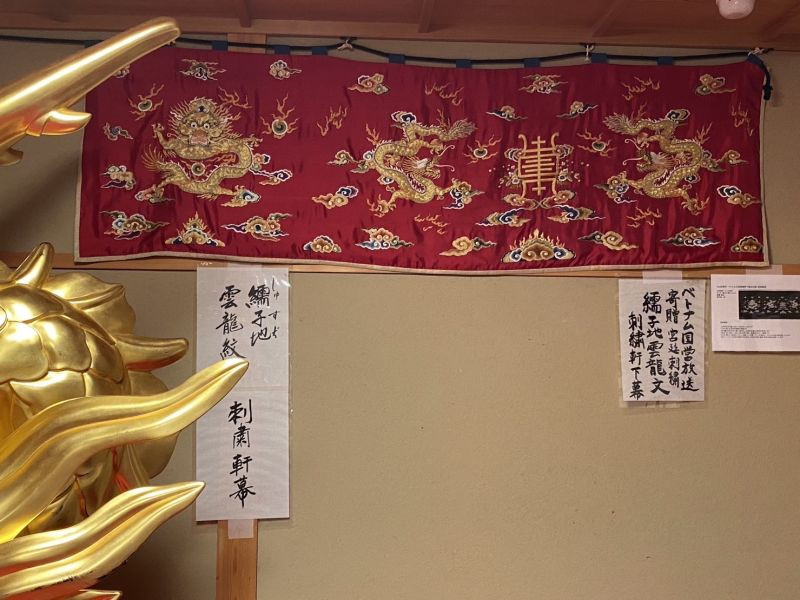 しゅすぢ
繻子地
雲龍紋
刺粛軒幕
ベトナム国営放送
寄贈 宮廷刺繍
繻子地雲龍文
刺繍軒下幕